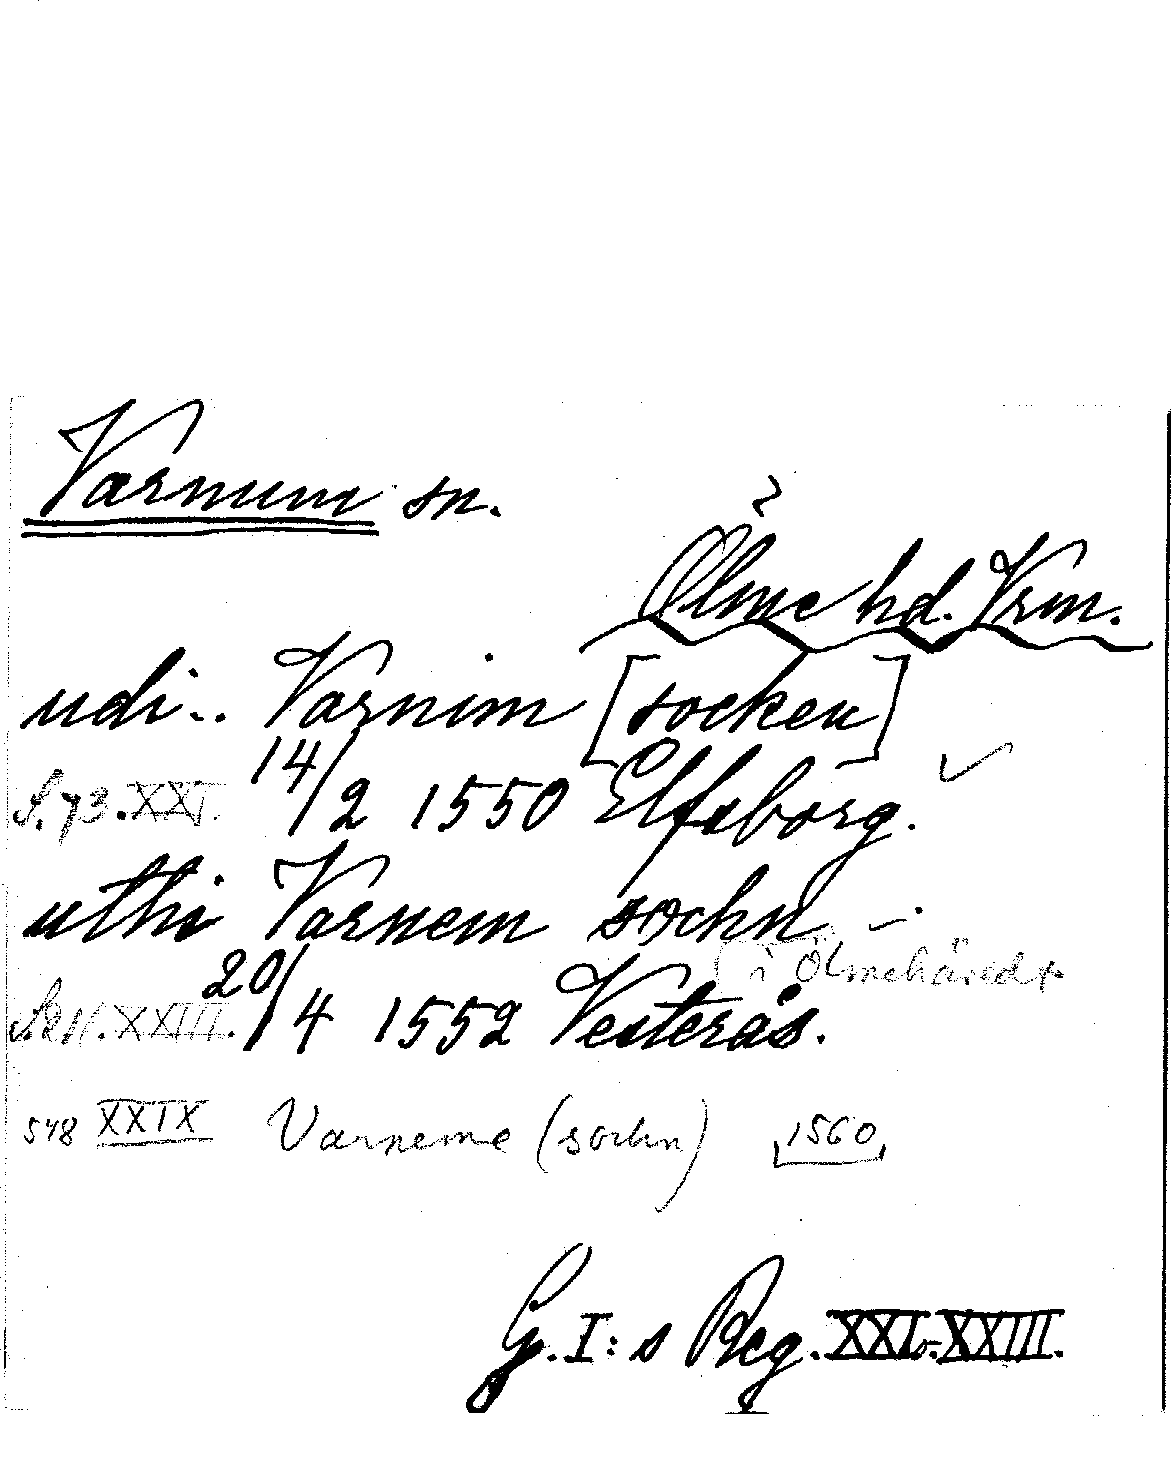 Varnum sn.
?
Ölme hd. Vrm.
udi.. Varnim [socken]
S. 73. XXI. 14/2 1550 Elfsborg.
uthi Varnem sochn
i Ölmehäredt
XXIII. 20/4 1552 Vesterås.
548 XXIX Varneme (sochn) 1560
G. I:s Reg. XXI-XXIII.